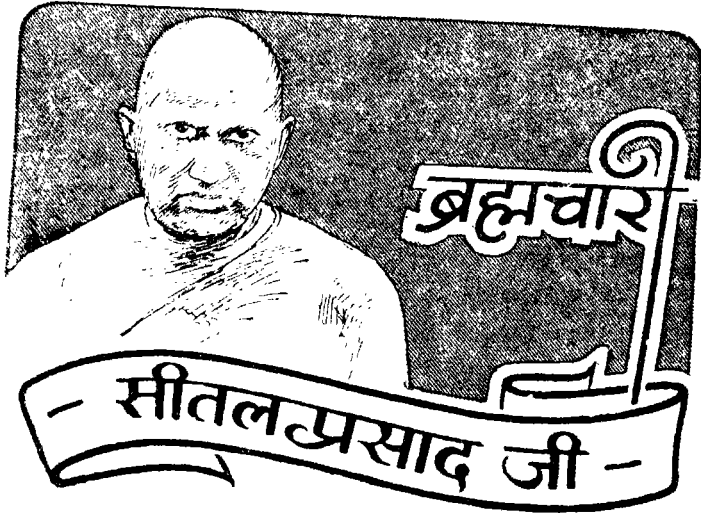 ब्रह्मचारी
- सीतलप्रसाद जी -